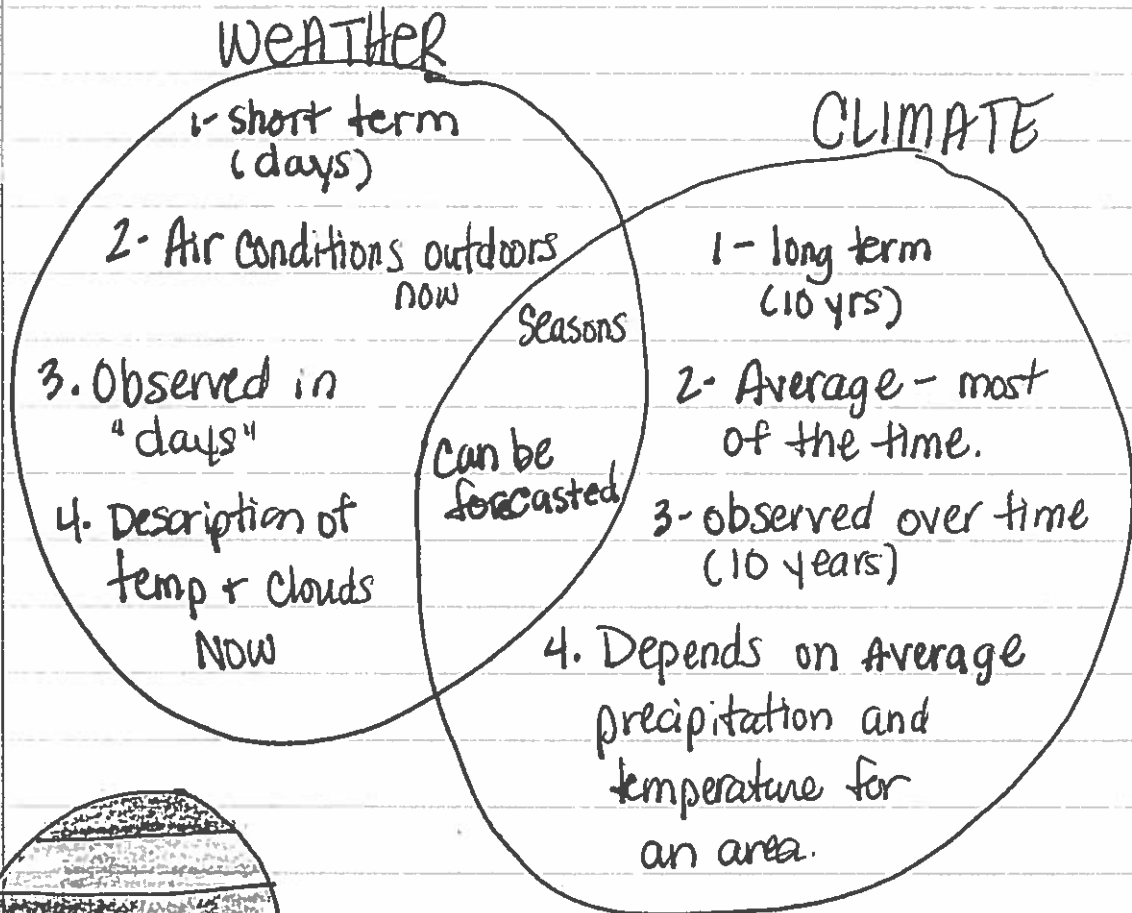 WEATHER
1- short term
(days)
2- Air conditions outdoors
now
3. Observed in
"days"
4. Description of
temp + clouds
NOW
Seasons
can be
forecasted
CLIMATE
1- long term
(10 yrs)
2- Average - most
of the time.
3- observed over time
(10 years)
4. Depends on Average
precipitation and
temperature for
an area.